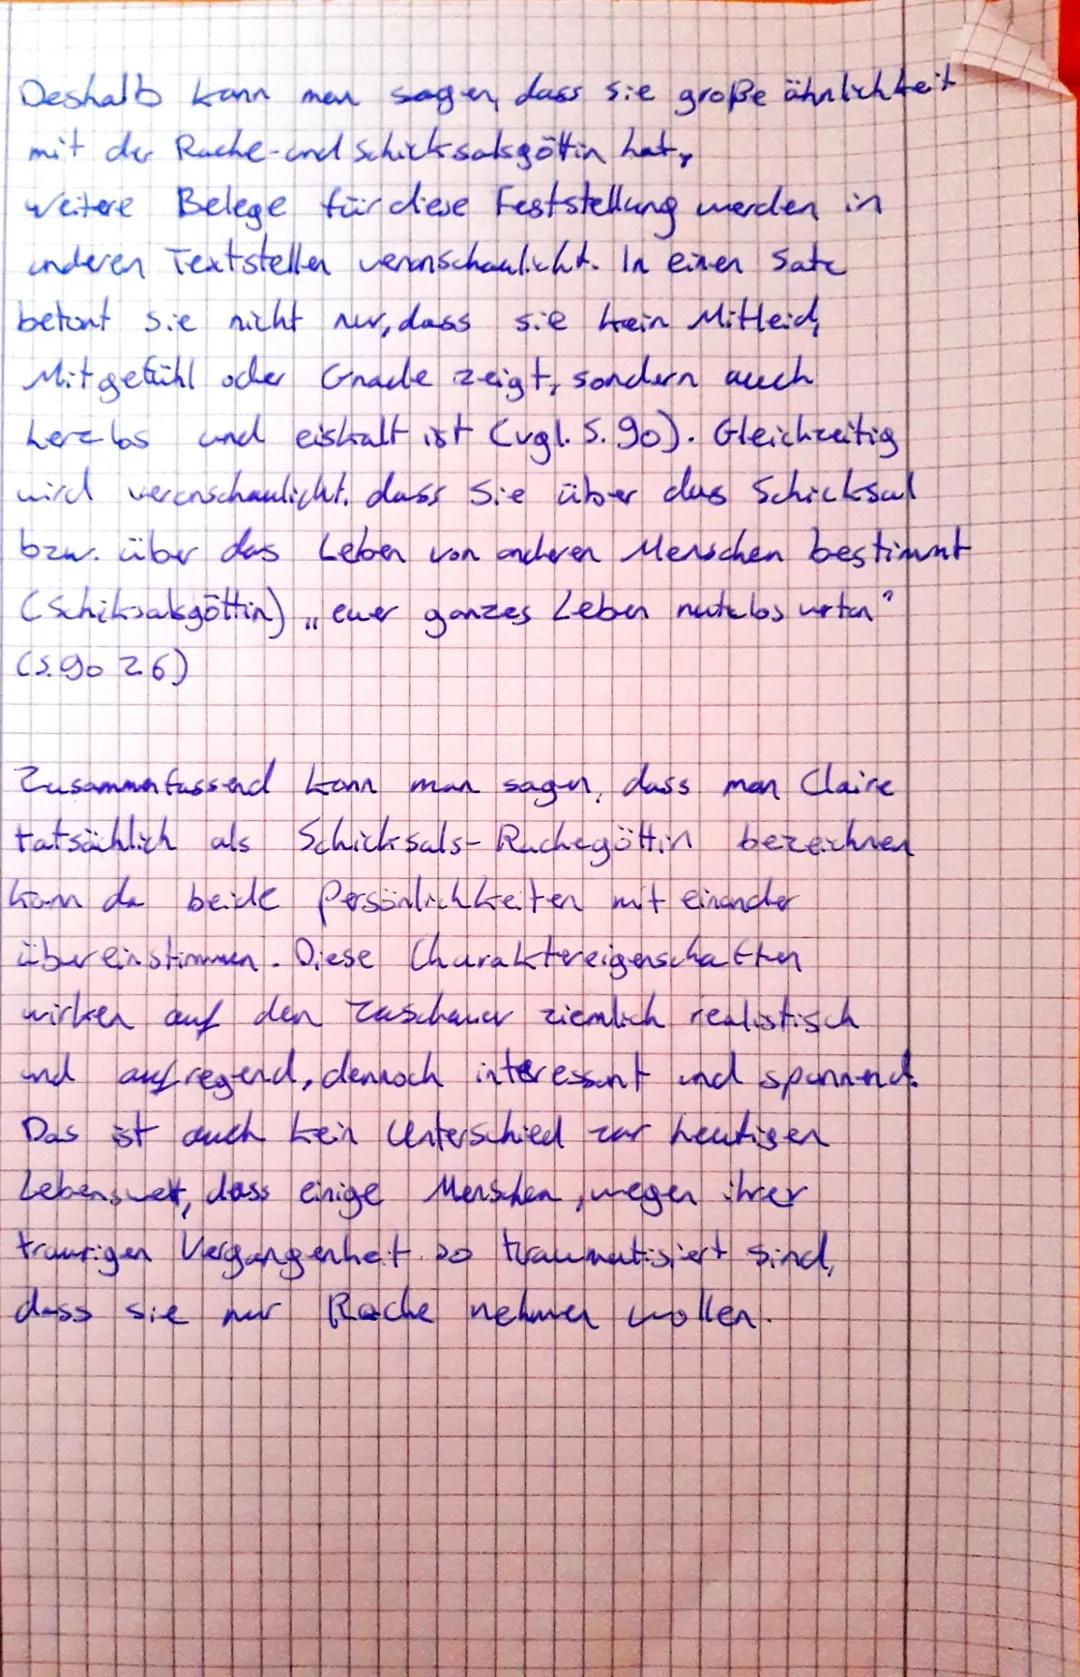 Deshalb kann man sagen, dass sie große ähnlichkeit
mit der Rache-und Schicksalsgöttin hat,
weitere Belege für diese Feststellung werden in
anderen Textstellen veranschaulicht. In einen Satz
betont sie nicht nur, dass sie kein Mitleid,
Mitgefühl oder Gnade zeigt, sondern auch
herzlos und eiskalt ist (vgl. S. 90). Gleichzeitig
wird veranschaulicht. dass Sie über das Schicksal
bzw. über das Leben von anderen Menschen bestimmt
(Schiksalsgöttin) „ euer ganzes Leben nutzlos
(S. 90 Z6)
Zusammenfassend kann man sagen, dass man Claire
tatsächlich als Schicksals-Rachegöttin bezeichnen
kann da beide Persönlichkeiten mit einander
übereinstimmen. Diese Charaktereigenschaften
wirken auf den Zuschauer ziemlich realistisch
und aufregend, dennoch interessant und spannend.
Das ist auch kein Unterschied zur heutigen
Lebenswelt, dass einige Menschen, wegen ihrer
traurigen Vergangenheit so traumatisiert sind,
dass sie nur Rache nehmen wollen.